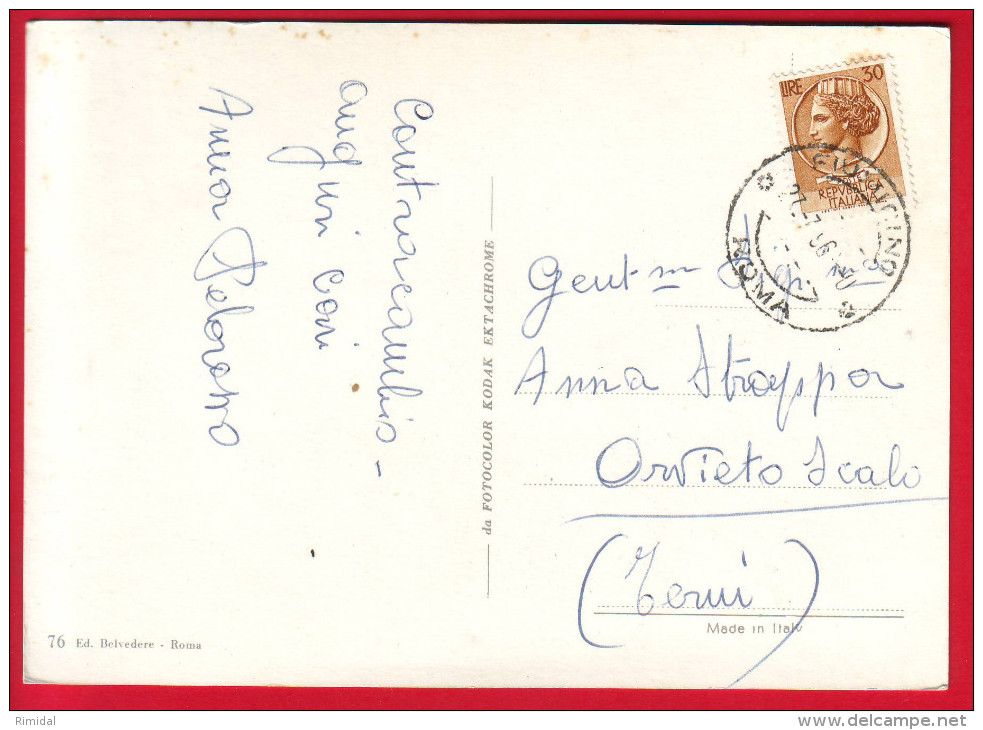 Contraccambio -
auguri cari
Anna
76 Ed. Belvedere - Roma
da FOTOCOLOR KODAK EKTACHROME
LIRE 30
REPVBBLICA
ITALIANA
FIUMICINO
ROMA
Gent.ma Sig.na
Anna Strappa
Orvieto Scalo
(Terni)
Made in Italy
Rimidal
delcampe.net